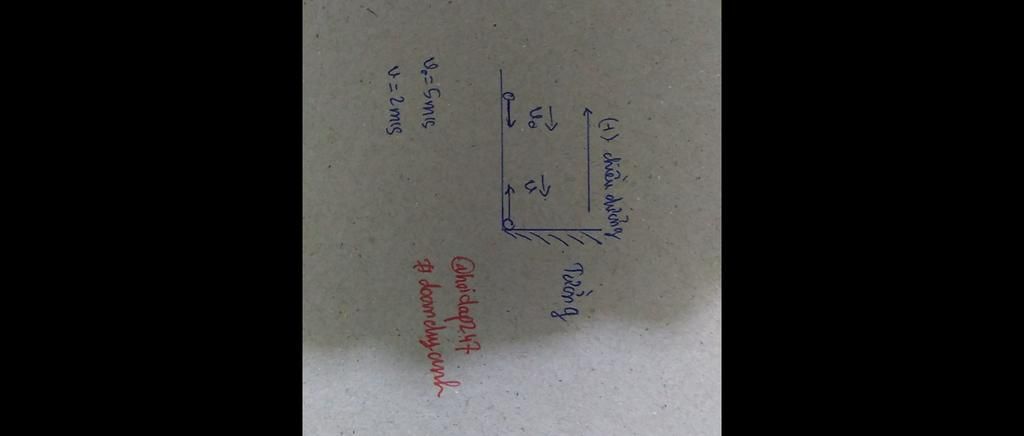 (+) chiều dương
v₀
v
Tường
v₀ = 5m/s
v = 2m/s
@hoidap247
#doanduyanh